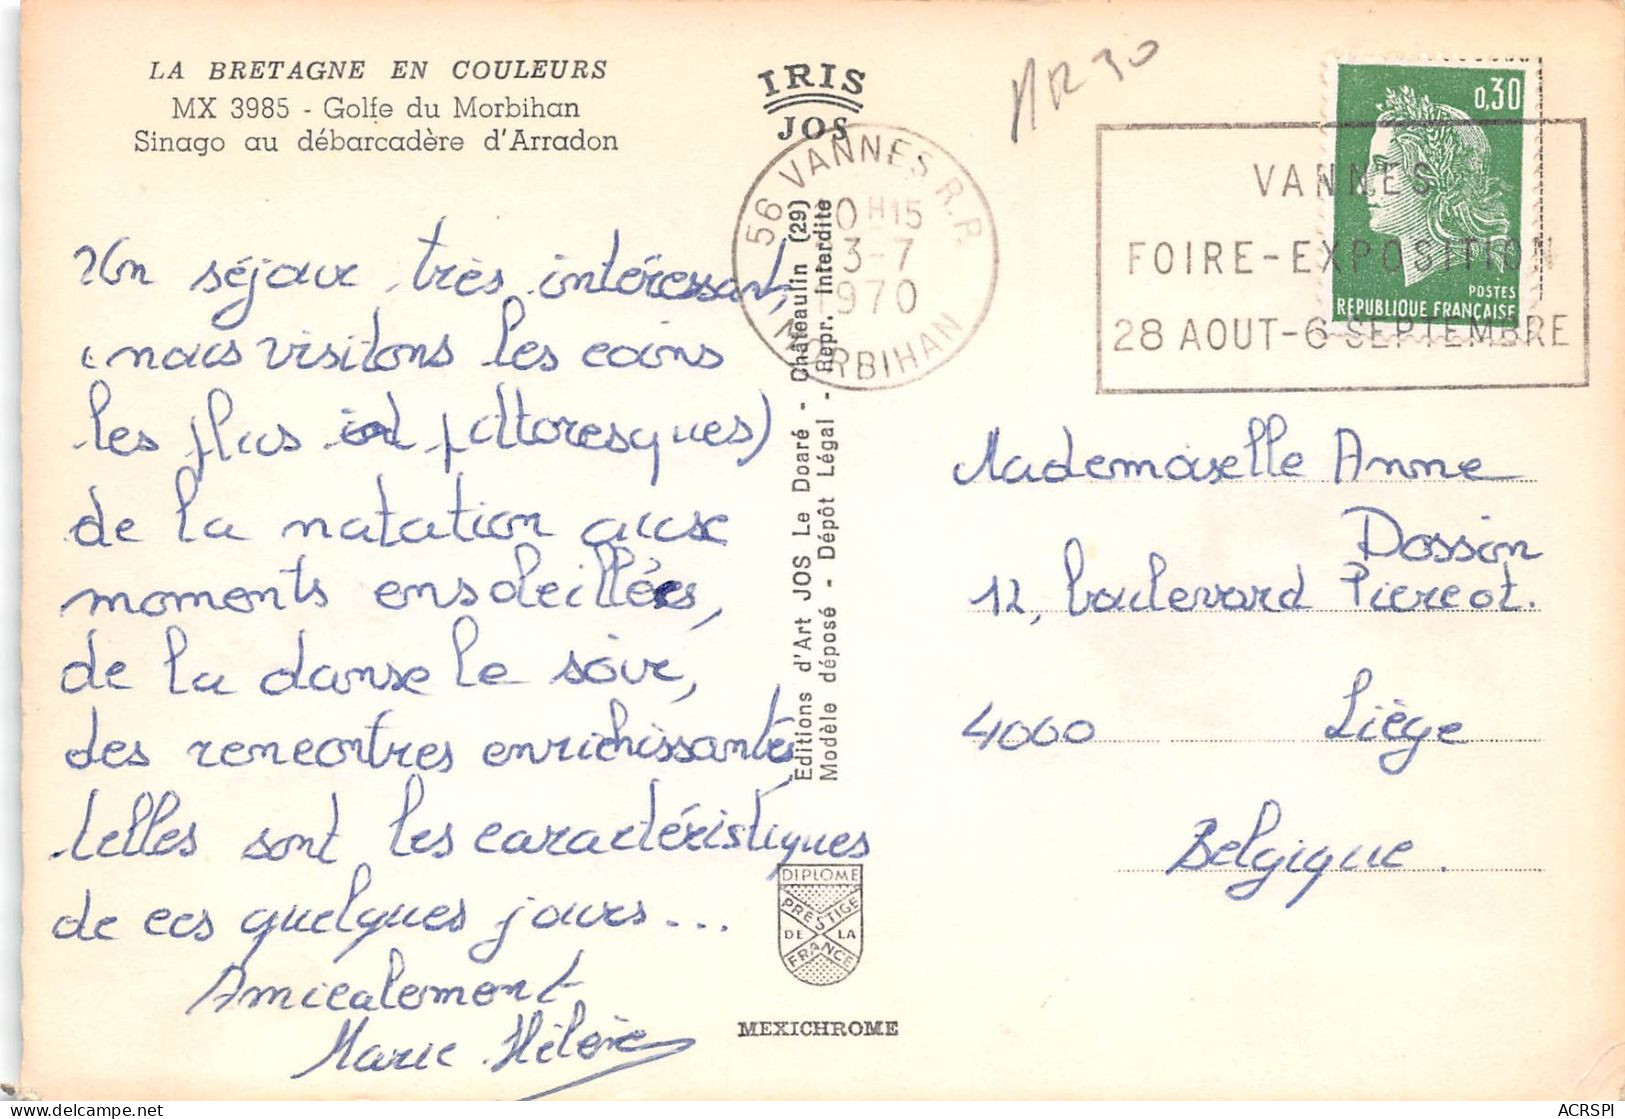 LA BRETAGNE EN COULEURS
MX 3985 - Golfe du Morbihan
Sinago au débarcadère d'Arradon
Un séjour très intéressant,
(nous visitons les coins
les plus pittoresques)
de la natation aux
moments ensoleillés,
de la danse le soir,
des rencontres enrichissantes
telles sont les caractéristiques
de ces quelques jours...
Amicalement
Marie Hélène
IRIS
JOS
Editions d'Art JOS Le Doaré - Châteaulin (29)
Modèle déposé - Dépôt Légal - Repr. Interdite
DIPLOME
PRESTIGE
DE LA
FRANCE
MEXICHROME
56 VANNES R.P.
0H15
3-7
1970
MORBIHAN
VANNES
FOIRE-EXPOSITION
28 AOUT-6 SEPTEMBRE
0,30
POSTES
REPUBLIQUE FRANÇAISE
Mademoiselle Anne
Dossin
12, boulevard Piercot.
4000 Liège
Belgique.
ACRSPI